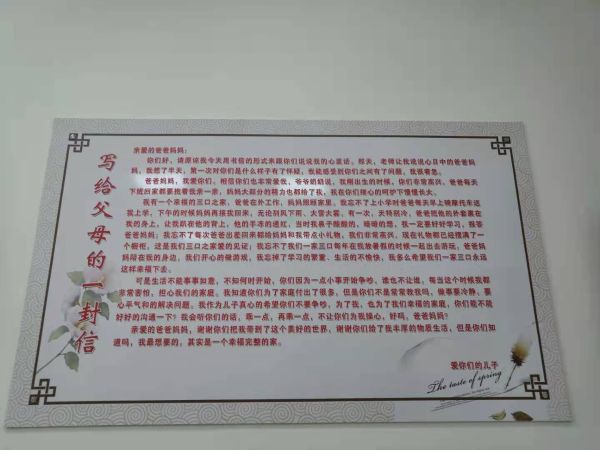 写给父母的一封信
亲爱的爸爸妈妈：
你们好，请原谅我今天用书信的形式来跟你们说说我的心里话。那天，老师让我说说心目中的爸爸妈
妈，我想了半天，第一次对你们是什么样子有了怀疑，我能感受到你们之间有了问题，我很着急。
爸爸妈妈，我爱你们，相信你们也非常爱我，爷爷奶奶说，我刚出生的时候，你们非常高兴，爸爸每天
下班回家都要找着我亲一亲，妈妈大部分的精力也都给了我，我在你们精心的呵护下慢慢长大。
我有一个幸福的三口之家，爸爸在外工作，妈妈照顾家里，我忘不了上小学时爸爸每天早上骑摩托车送
我上学，下午的时候妈妈再接我回来，无论刮风下雨、大雪大雾，有一次，天特别冷，爸爸把他的外套裹在
我的身上，让我趴在他的背上，他的手冻的通红，当时我鼻子酸酸的，暗暗的想，我一定要好好学习，报答
爸爸妈妈；我忘不了每次爸爸出差回来都给妈妈和我带点小礼物，我们非常高兴，现在礼物都已经摆满了一
个橱柜，这是我们三口之家爱的见证；我忘不了我们一家三口每年在我放暑假的时候一起出去游玩，爸爸妈
妈陪在我的身边，我们开心的做游戏，我忘掉了学习的繁重、生活的不愉快，我多么希望我们一家三口永远
这样幸福下去。
可是生活不能事事如意，不知何时开始，你们因为一点小事开始争吵，谁也不让谁，每当这个时候我都
非常害怕，担心我们的家庭。我知道你们为了家庭付出了很多，但是你们不是常常教我吗，做事要冷静，要
心平气和的解决问题。我作为儿子真心的希望你们不要争吵，为了我，也为了我们幸福的家庭，你们能不能
好好的沟通一下？我会听你们的话，乖一点，再乖一点，不让你们为我操心，好吗，爸爸妈妈？
亲爱的爸爸妈妈，谢谢你们把我带到了这个美好的世界，谢谢你们给了我丰厚的物质生活，但是你们知
道吗，我最想要的，其实是一个幸福完整的家。
爱你们的儿子
The taste of spring